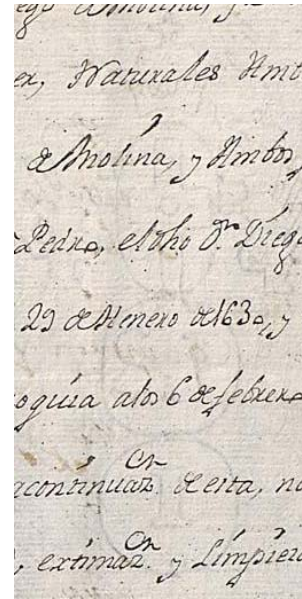 ego de Molina, y
er, Naturales Amb
de Molina, y Ambos
Pedro, el dho Dn. Diego
29 de Henero de 1630, y
oquia alos 6 de febrero
acontinuaz.on de esta, no
, extimaz.on y Limpieza